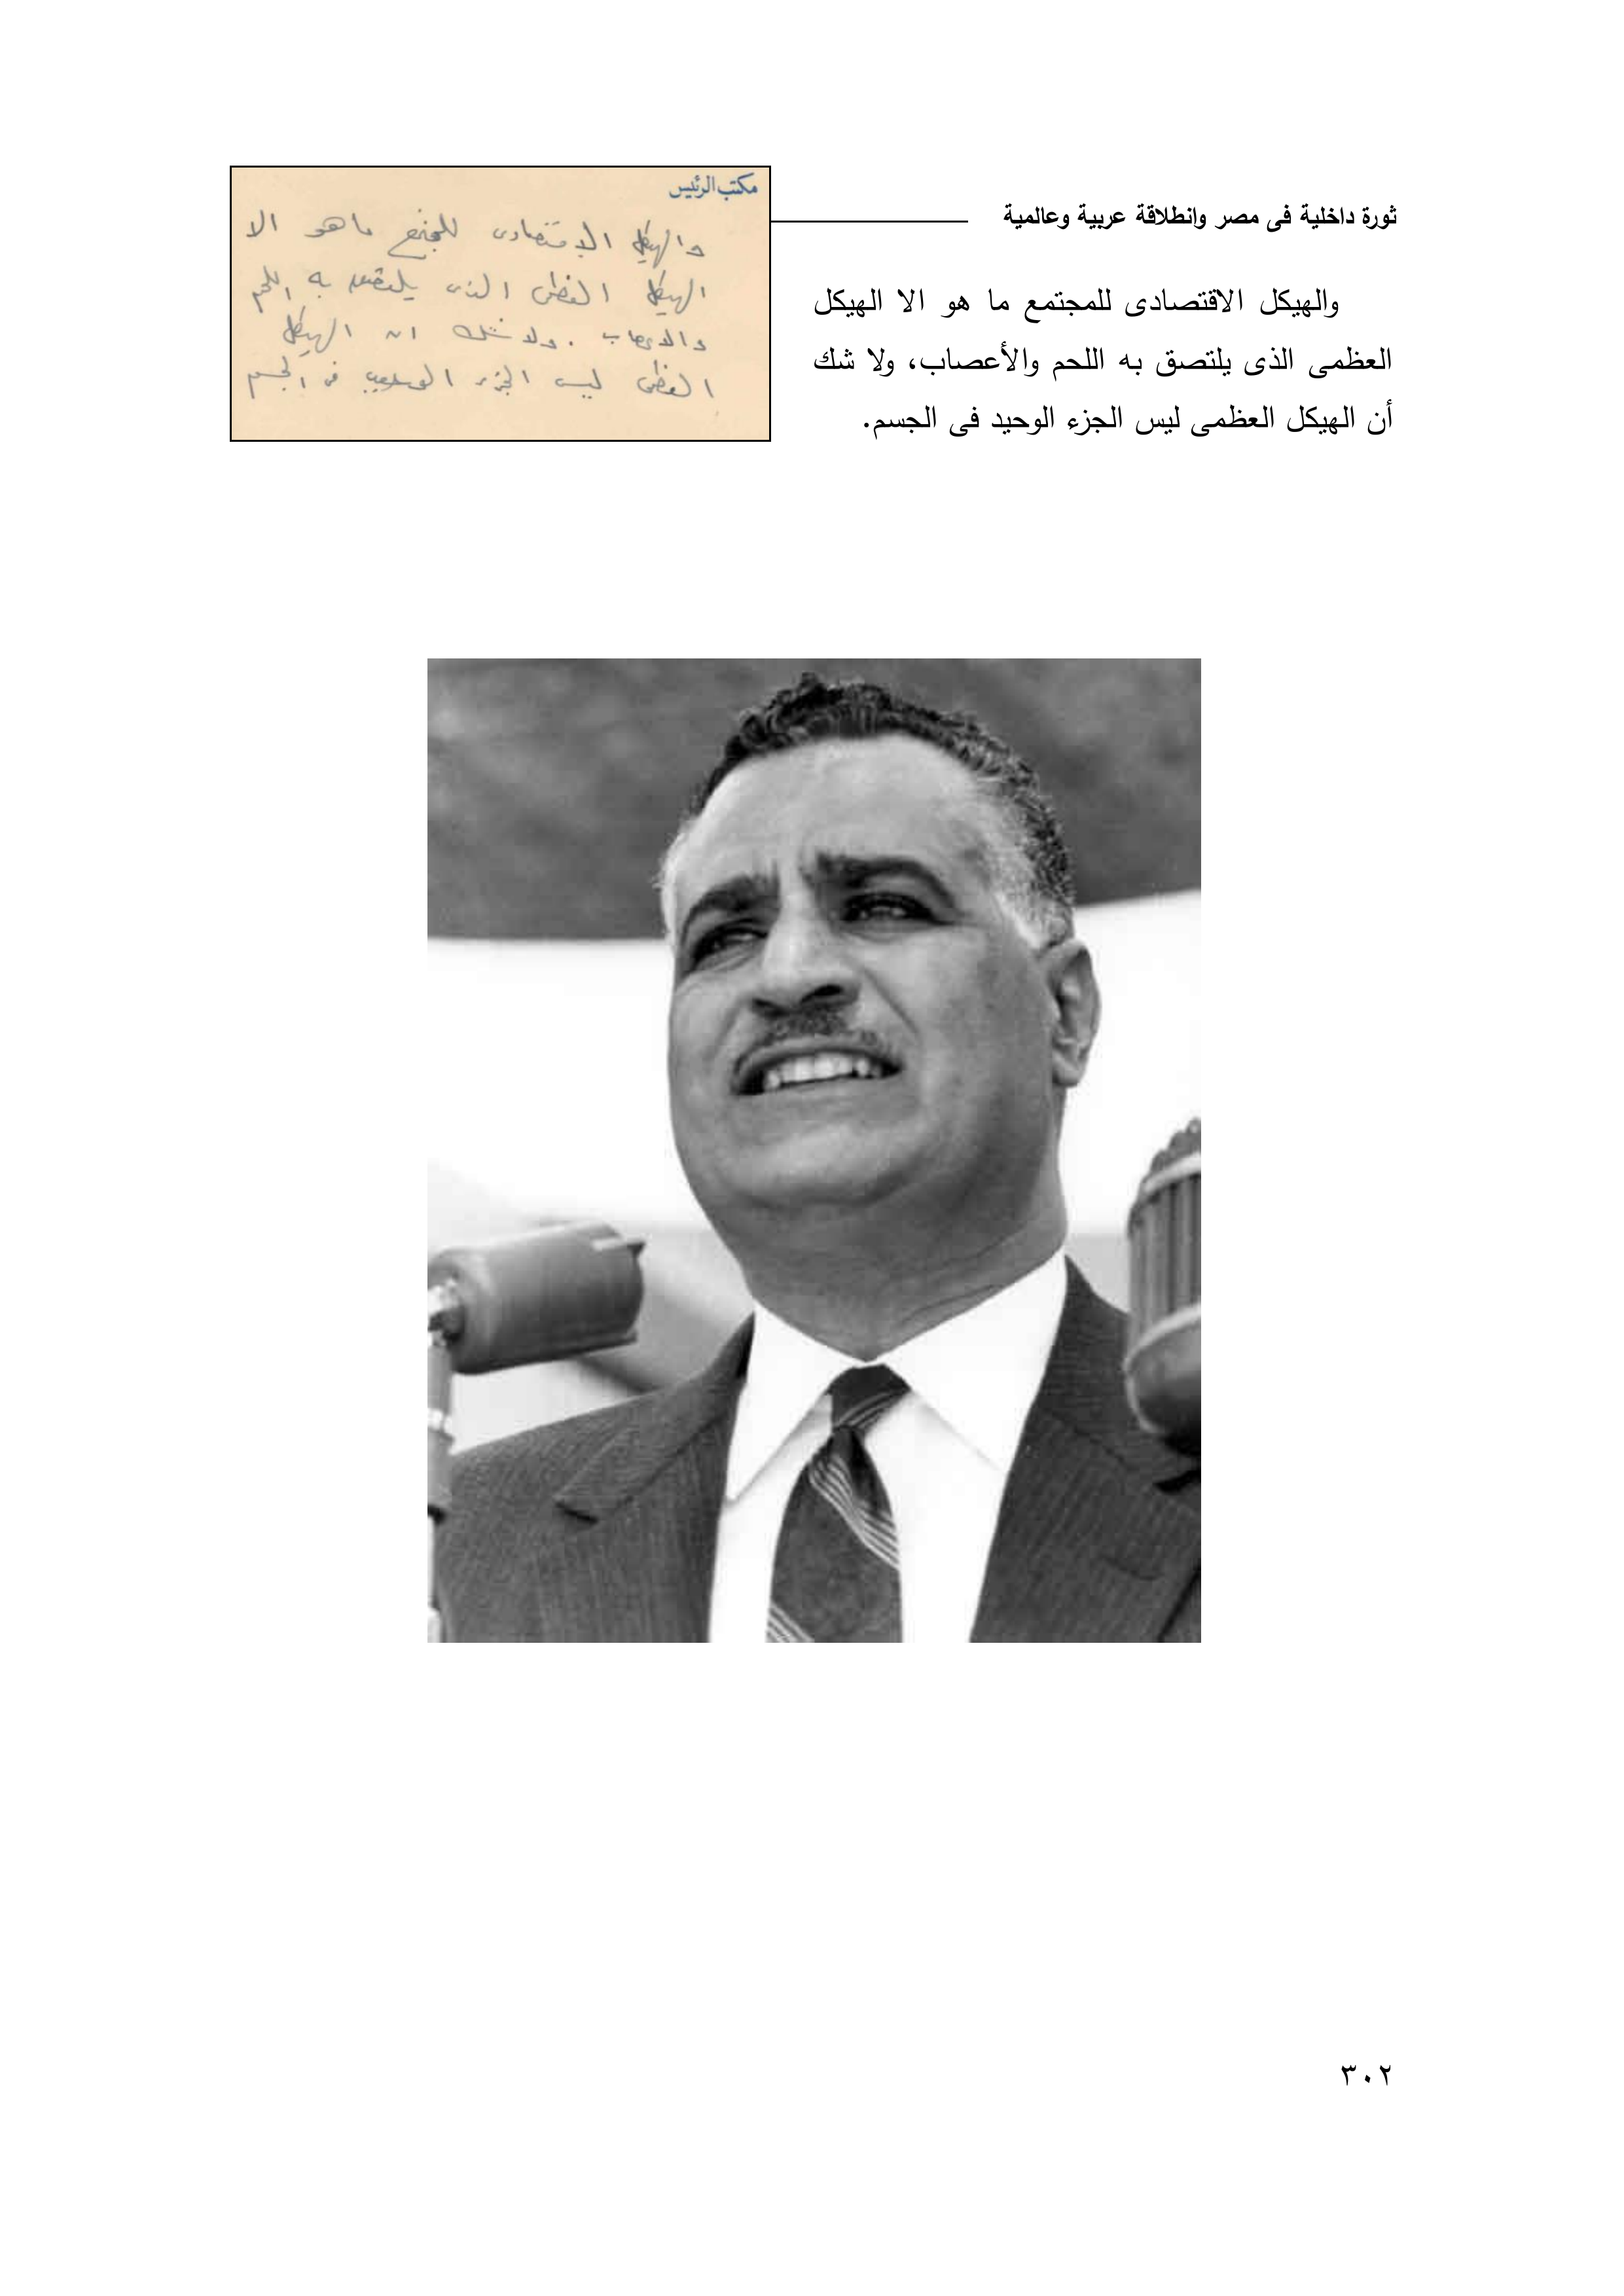 ثورة داخلية فى مصر وانطلاقة عربية وعالمية
والهيكل الاقتصادى للمجتمع ما هو الا الهيكل
العظمى الذى يلتصق به اللحم والأعصاب، ولا شك
أن الهيكل العظمى ليس الجزء الوحيد فى الجسم.
مكتب الرئيس
والهيكل الاقتصادى للمجتمع ما هو الا
الهيكل العظمى الذى يلتصق به اللحم
والاعصاب . ولا شك ان الهيكل
العظمى ليس الجزء الوحيد فى الجسم
٣٠٢